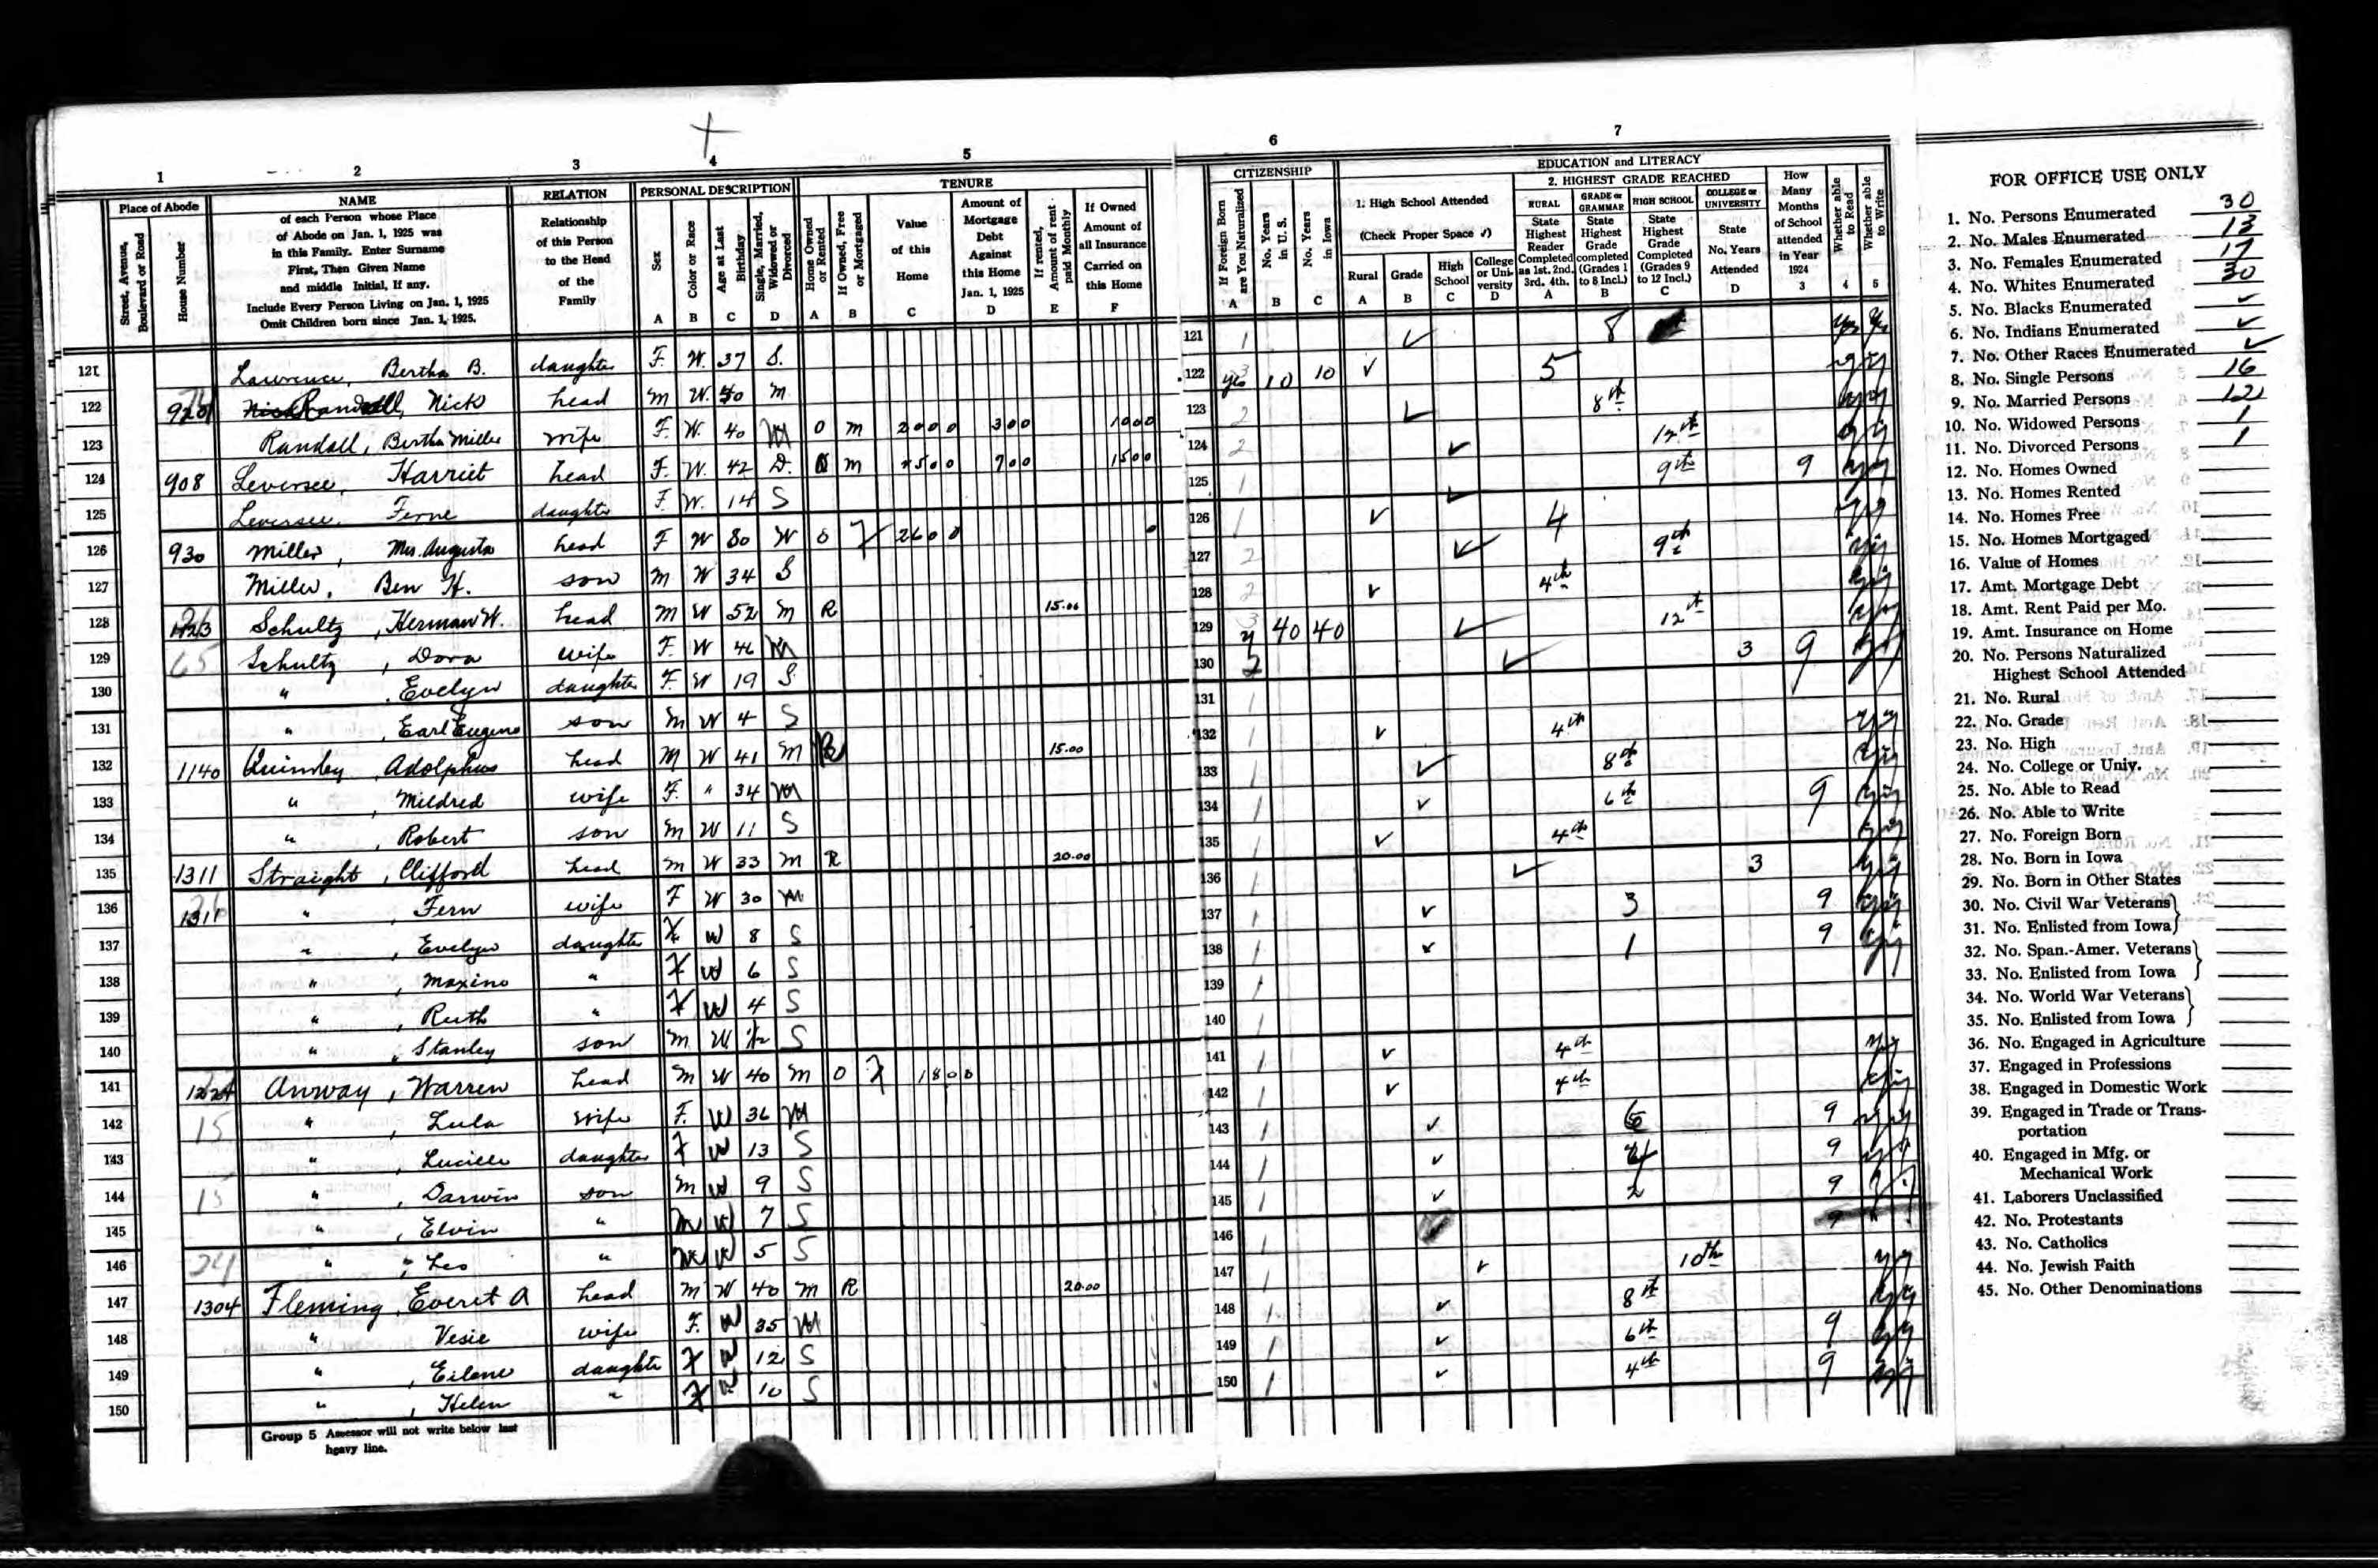 1 2 3 4 5 6 7
Place of Abode NAME RELATION PERSONAL DESCRIPTION TENURE CITIZENSHIP EDUCATION and LITERACY
Street, Avenue, Boulevard or Road
House Number
of each Person whose Place
of Abode on Jan. 1, 1925 was
in this Family. Enter Surname
First, Then Given Name
and middle Initial, if any.
Include Every Person Living on Jan. 1, 1925
Omit Children born since Jan. 1, 1925.
Relationship
of this Person
to the Head
of the
Family
Sex
Color or Race
Age at Last Birthday
Single, Married, Widowed or Divorced
A B C D
Home Owned or Rented
If Owned, Free or Mortgaged
Value
of this
Home
Amount of
Mortgage
Debt
Against
this Home
Jan. 1, 1925
If rented, Amount of rent paid Monthly
If Owned
Amount of
all Insurance
Carried on
this Home
A B C D E F
If Foreign Born are You Naturalized
No. Years in U. S.
No. Years in Iowa
A B C
1. High School Attended
(Check Proper Space ✓)
Rural Grade High School College or University
A B C D
2. HIGHEST GRADE REACHED
RURAL
State
Highest
Reader
Completed
as 1st. 2nd.
3rd. 4th.
A
GRADE or GRAMMAR
State
Highest
Grade
completed
(Grades 1
to 8 Incl.)
B
HIGH SCHOOL
State
Highest
Grade
Completed
(Grades 9
to 12 Incl.)
C
COLLEGE or UNIVERSITY
State
No. Years
Attended
D
How
Many
Months
of School
attended
in Year
1924
3
Whether able to Read
4
Whether able to Write
5
121 Lawrence, Bertha B. daughter F. W. 37 S. 121 1 ✓ 8 yes yes
122 920 Randall, Nick head M W. 50 M 122 yes 10 10 ✓ 5 y y
123 Randall, Bertha Miller wife F. W. 40 M O M 2000 300 1000 123 2 ✓ 8th y y
124 908 Leversee, Harriet head F. W. 42 D. O M 2500 700 1500 124 2 ✓ 12th y y
125 Leversee, Ferne daughter F. W. 14 S 125 1 ✓ 9th 9 y y
126 930 Miller, Mrs. Augusta head F W 80 W O F 2600 126 1 ✓ 4 y y
127 Miller, Ben H. son M W 34 S 127 2 ✓ 9th y y
128 Schultz, Herman W. head M W 52 M R 15.00 128 2 ✓ 4th y y
129 65 Schultz, Dora wife F. W 46 M 129 y 40 40 ✓ 12th y y
130 " , Evelyn daughter F. W 19 S. 130 2 ✓ 3 9 y y
131 " , Earl Eugene son M W 4 S 131 1
132 1140 Quimby, Adolphus head M W 41 M R 15.00 132 1 ✓ 4th y y
133 " , Mildred wife F. " 34 M 133 1 ✓ 8th y y
134 " , Robert son M W 11 S 134 1 ✓ 6th 9 y y
135 1311 Straight, Clifford head M W 33 M R 20.00 135 1 ✓ 4th y y
136 1311 " , Fern wife F W 30 M 136 1 ✓ 3 y y
137 " , Evelyn daughter F W 8 S 137 1 ✓ 3 9 y y
138 " , Maxine " F W 6 S 138 1 ✓ 1 9 y y
139 " , Ruth " F W 4 S 139 1
140 " , Stanley son M W S 140
141 Anway, Warren head M W 40 M O F 1800 141 1 ✓ 4th y y
142 15 " , Lula wife F. W 36 M 142 1 ✓ 4th y y
143 " , Lucille daughter F W 13 S 143 1 ✓ 9 y y
144 15 " , Darwin son M W 9 S 144 1 ✓ 9 y y
145 " , Elvin " M W 7 S 145 1 ✓ 2 9
146 24 " , Leo " M W 5 S 146 1
147 1304 Fleming, Everet A head M W 40 M R 20.00 147 1 ✓ 10th y y
148 " Vesie wife F. W 35 M 148 1 ✓ 8th y y
149 " , Eilene daughter F W 12 S 149 1 ✓ 6th 9 y y
150 " , Helen " F W 10 S 150 1 ✓ 4th 9 y y
Group 5 Assessor will not write below last
heavy line.
FOR OFFICE USE ONLY
1. No. Persons Enumerated 30
2. No. Males Enumerated 13
3. No. Females Enumerated 17
4. No. Whites Enumerated 30
5. No. Blacks Enumerated ✓
6. No. Indians Enumerated ✓
7. No. Other Races Enumerated ✓
8. No. Single Persons 16
9. No. Married Persons 12
10. No. Widowed Persons 1
11. No. Divorced Persons 1
12. No. Homes Owned
13. No. Homes Rented
14. No. Homes Free
15. No. Homes Mortgaged
16. Value of Homes
17. Amt. Mortgage Debt
18. Amt. Rent Paid per Mo.
19. Amt. Insurance on Home
20. No. Persons Naturalized
Highest School Attended
21. No. Rural
22. No. Grade
23. No. High
24. No. College or Univ.
25. No. Able to Read
26. No. Able to Write
27. No. Foreign Born
28. No. Born in Iowa
29. No. Born in Other States
30. No. Civil War Veterans
31. No. Enlisted from Iowa
32. No. Span.-Amer. Veterans
33. No. Enlisted from Iowa
34. No. World War Veterans
35. No. Enlisted from Iowa
36. No. Engaged in Agriculture
37. Engaged in Professions
38. Engaged in Domestic Work
39. Engaged in Trade or Trans-
portation
40. Engaged in Mfg. or
Mechanical Work
41. Laborers Unclassified
42. No. Protestants
43. No. Catholics
44. No. Jewish Faith
45. No. Other Denominations